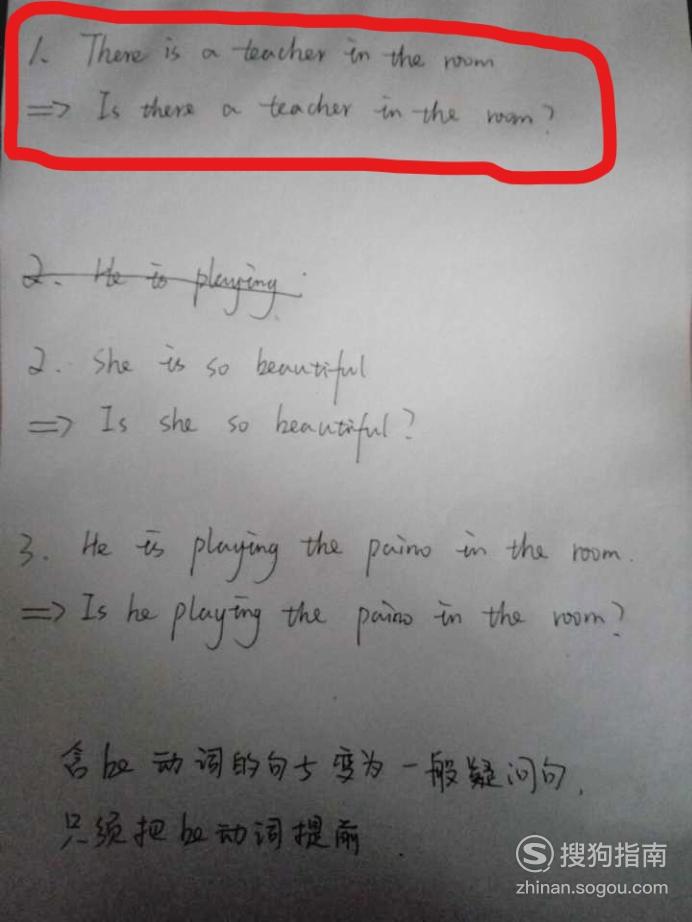 1. There is a teacher in the room
=> Is there a teacher in the room?
2. He is playing.
2. She is so beautiful
=> Is she so beautiful?
3. He is playing the paino in the room.
=> Is he playing the paino in the room?
含be动词的句子变为一般疑问句,
只须把be动词提前.
搜狗指南
zhinan.sogou.com